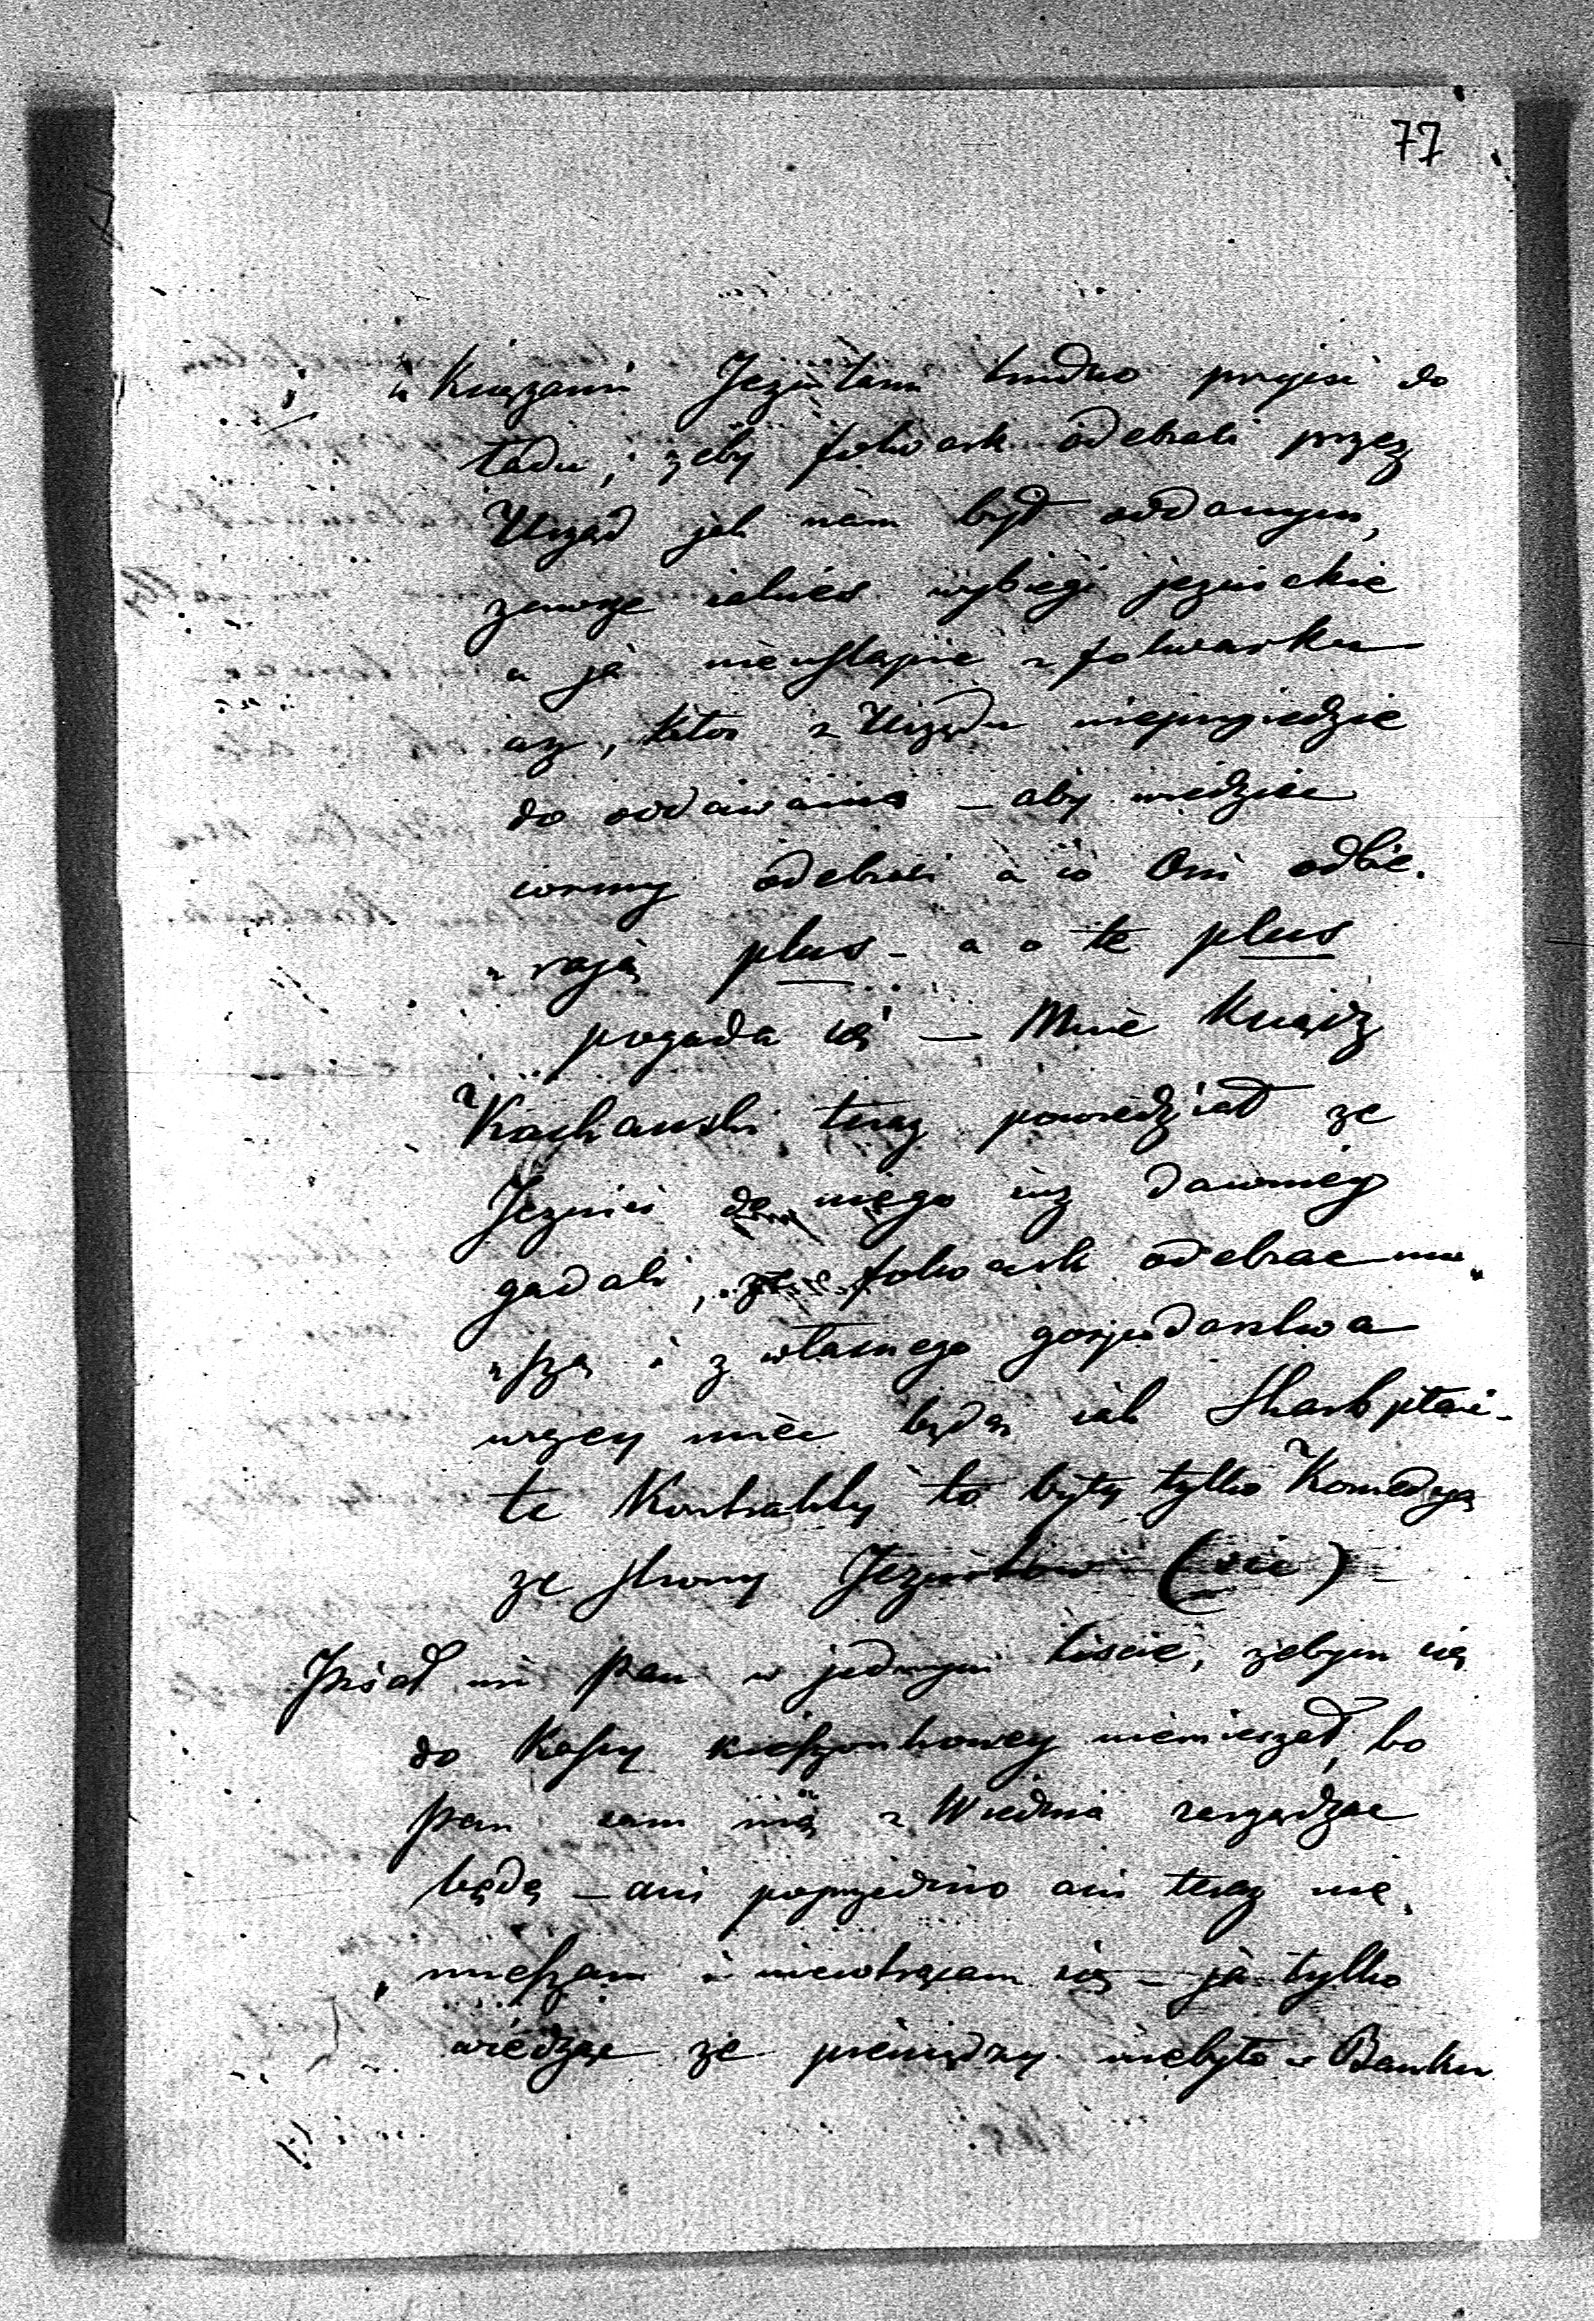 77
z Księżami Jezuitami trudno przyiść do
ładu, żeby folwark odebrali przez
Urząd jak nam był oddanym,
zawsze iakieś wybiegi jezuickie
a ja nieustąpie z folwarku
aż, ktoś z Urzędu nieprzyiedzie
do oddawania – aby wiedzieć
cośmy odebrali a co Oni odbie„
„rają plus – a o te plus
pogada się – Mnie Ksiądz
Kachauski teraz powiedział ze
Jezuici do niego iuż dawniey
gadali, że folwark odebrac mu„
„szą i z własnego gospodarstwa
więcey mieć będą iak Skarb płaci –
te Kontrakty to były tylko Komedyą
ze strony Jezuitów (sic)
Pisał mi Pan w jednym liście, żebym się
do Kassy kieszonkowey niemieszał, bo
Pan sam nią z Wiednia zarządzać
będą – ani poprzednio ani teraz nie„
„mieszam i niewtrącam się – ja tylko
wiedząc że pieniędzy niebyło w Banku